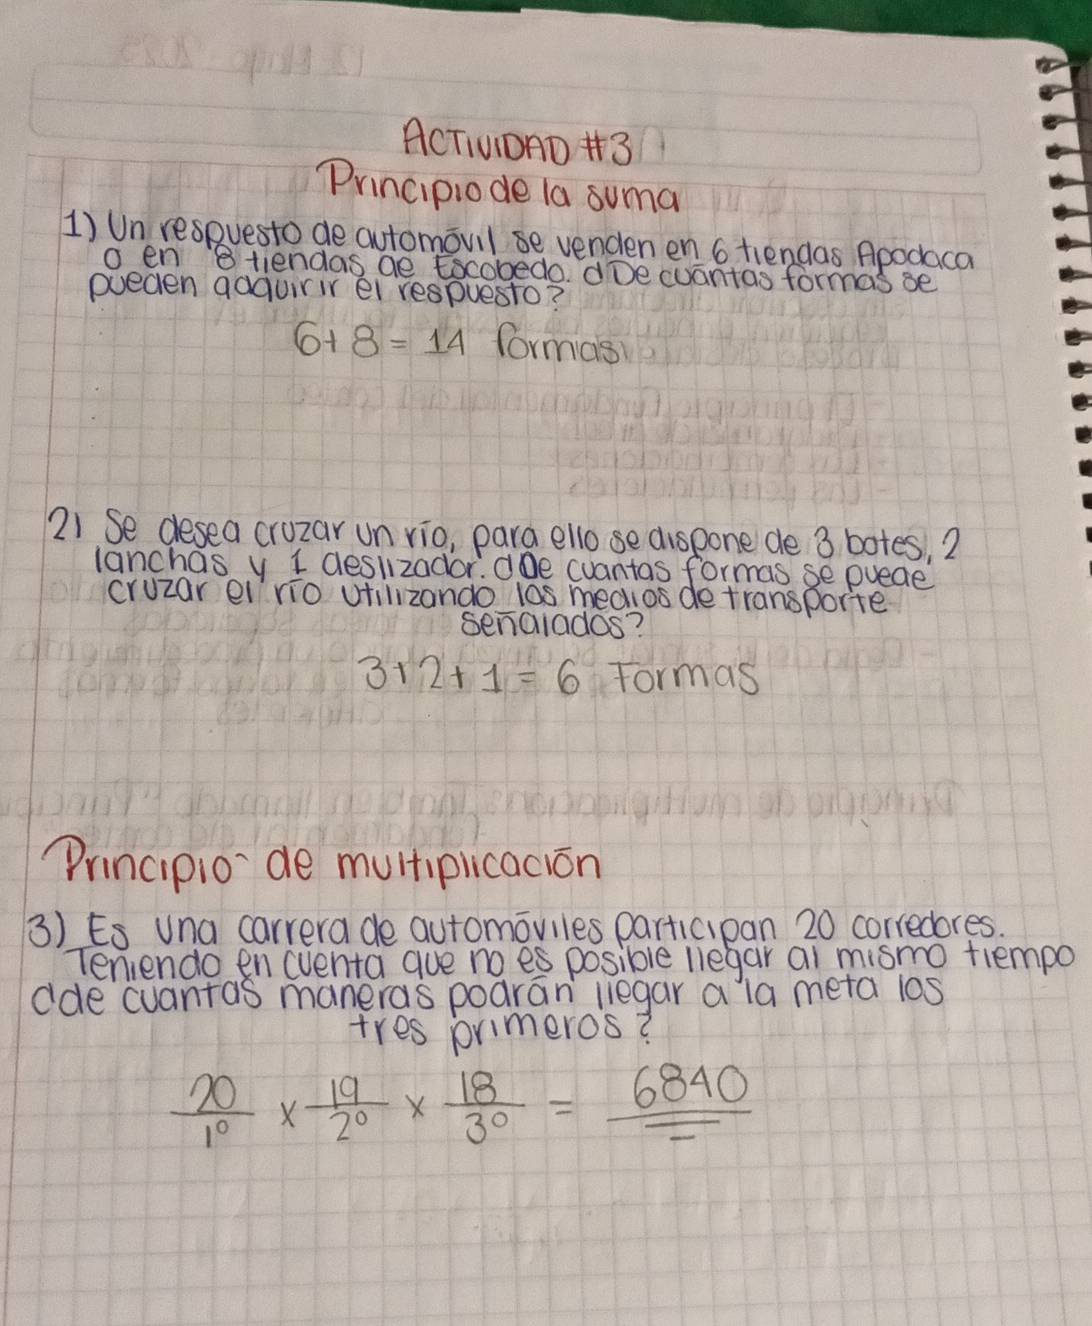 ACTIVIDAD #3
Principio de la suma
1) Un respuesto de automóvil se venden en 6 tiendas Apodaca
o en 8 tiendas de Escobedo. ¿De cuántas formas se
pueden adquirir el respuesto?
6+8=14 formas
2) Se desea cruzar un río, para ello se dispone de 3 botes, 2
lanchas y 1 deslizador. ¿De cuantas formas se puede
cruzar el río utilizando los medios de transporte
señalados?
3+2+1=6 Formas
Principio de multiplicación
3) Es una carrera de automóviles participan 20 corredores.
Teniendo en cuenta que no es posible llegar al mismo tiempo
¿de cuantas maneras podrán llegar a la meta los
tres primeros?
20/1° x 19/2° x 18/3° = 6840